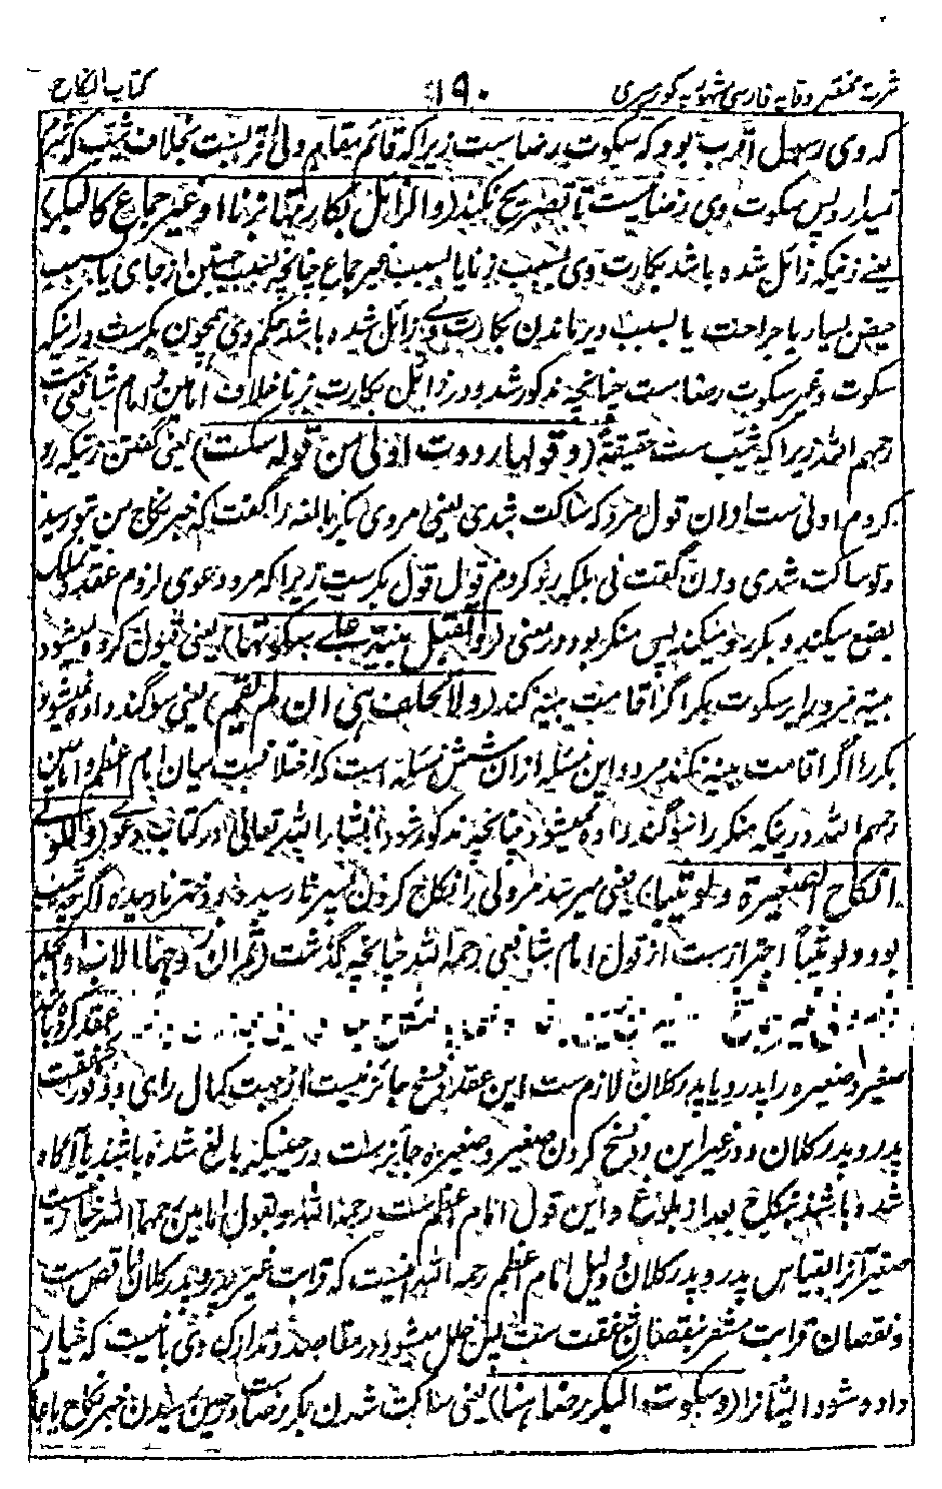 شرح مختصر وقایه فارسی مشهور به کور میری ۱۹۰ کتاب النکاح
که وی رسول اقرب بود که سکوت رضاست زیراکه قائم مقام ولی قریبست بخلاف ثیب که شرم
نمیدارد پس سکوت وی رضا نیست تا تصریح نکند (والزائل بکارتها بزنا او غیر جماع کالبکر)
یعنے زنیکه زائل شده باشد بکارت وی بسبب زنا یا بسبب غیر جماع چنانچه بسبب جستن از جای یا بسبب
حیض بسیار یا جراحت یا بسبب دیر ماندن بکارت وے زائل شده باشد حکم وی همچون بکرست در اینکه
سکوت و غیر سکوت رضاست چنانچه مذکور شد و در زائل بکارت بزنا خلاف امامین و امام شافعی ست
رحمهم الله زیراکه ثیب ست حقیقةً (وقولها رددت اولی من قوله سکت) یعنی گفتن زنیکه رد
کردم اولی ست از ان قول مرد که ساکت شدی یعنی مردی بکر بالغه را گفت که خبر نکاح من بتو رسید
و تو ساکت شدی و زن گفت نی بلکه رد کردم قول قول بکرست زیراکه مرد دعوی لزوم عقد و تملک
بضع میکند و بکر رد میکند پس منکر بود در معنی (وتقبل بینته علے سکوتها) یعنی قبول کرده میشود
بینه مرد برابر سکوت بکر اگر اقامت بینه کند (ولا تحلف هی ان لم یقم) یعنی سوگند داده نمیشود
بکر را اگر اقامت بینه نکند مرد و این مسئله از ان شش مسئله است که اختلافست میان امام اعظم و امامین
رحمهم الله در ینکه منکر را سوگند داده میشود چنانچه مذکور شود انشاء الله تعالی در کتاب دعوے (وللولے
انکاح الصغیرة ولو ثیبا) یعنی میرسد مر ولی را نکاح کردن پسر نارسیده و دختر نارسیده اگرچه ثیب
بود و لو ثیباً احترازست از قول امام شافعی رحمه الله چنانچه گذشت (ثم ان زوجها الاب او الجد
عقد کرده باشد
صغیر و صغیره را پدر و یا پدر کلان لازم ست این عقد و فسخ جائز نیست از جهت کمال رای و وفور شفقت
پدر و پدر کلان و در غیر این دو فسخ کردن صغیر و صغیره جائزست در حینیکه بالغ شده باشند یا آگاه
شده باشند بنکاح بعد از بلوغ و این قول امام اعظم ست رحمه الله و بقول امامین رحمهما الله خیار نیست
صغیر را بقیاس پدر و پدر کلان و دلیل امام اعظم رحمه الله اینست که قرابت غیر پدر و پدر کلان ناقص ست
و نقصان قرابت مشعر بنقصان شفقت ست پس خلل میشود در مقاصد و تدارک وی بانیست که خیار
داده شود ایشانرا (وسکوت البکر رضا هنا) یعنی ساکت شدن بکر رضاست در حین رسیدن خبر نکاح یا